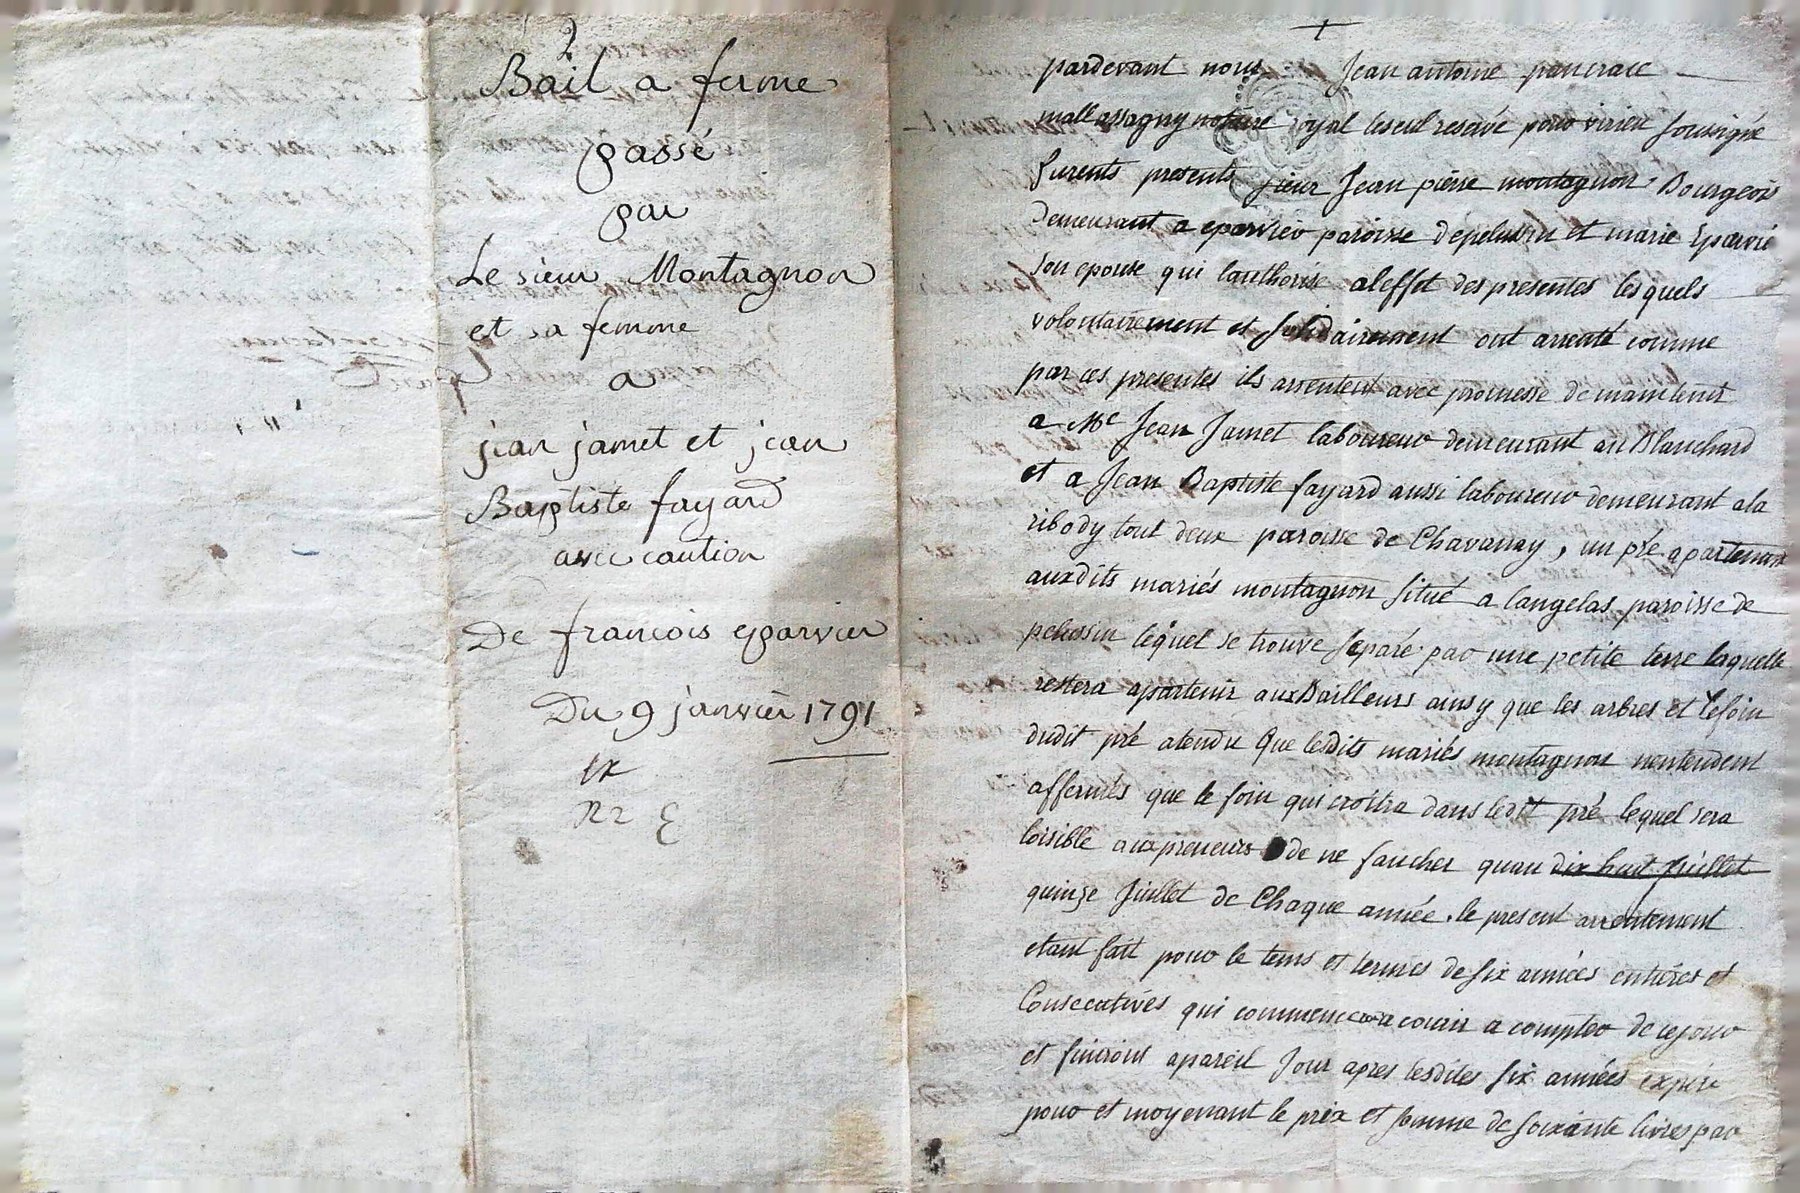 2
Bail a ferme
passé
par
Le sieur Montagnon
et sa femme
a
jean jamet et jean
Baptiste fayard
avec caution
De francois eparvier
Du 9 janvier 1791
pardevant nous Jean antoine pancrace
mallassagny notaire royal leseul reservé pour virieu soussigné
furents presents sieur Jean pierre montagnon Bourgeois
Demeurant a eparvier paroisse depelussin et marie Eparvié
son epouse qui lauthorise aleffet des presentes lesquels
volontairement et solidairement ont arrenté comme
par ces presentes ils arrentent avec promesse de maintenir
a Me Jean Jamet laboureur demeurant au Blanchard
et a Jean Baptiste fayard aussi laboureur demeurant ala
ribody tout deux paroisse de Chavanay, un pré apartenant
auxdits mariés montagnon situé a langelas paroisse de
pelussin lequel se trouve separé par une petite terre laquelle
restera apartenir aux Bailleurs ainsy que les arbres et lefoin
dudit pré atendu que lesdits mariés montagnon nentendent
affermés que le foin qui croitra dans ledit pré lequel sera
loisible auxpreneurs de ne faucher quau dix huit juillet
quinze Juillet de Chaque année. le present arrentement
etant fait pour le tems et termes de six années entieres et
Consecatives qui commencera courir a compter de cejour
et finiront apareil Jour apres lesdites six années expiré
pour et moyenant le prix et somme de soixante livres par